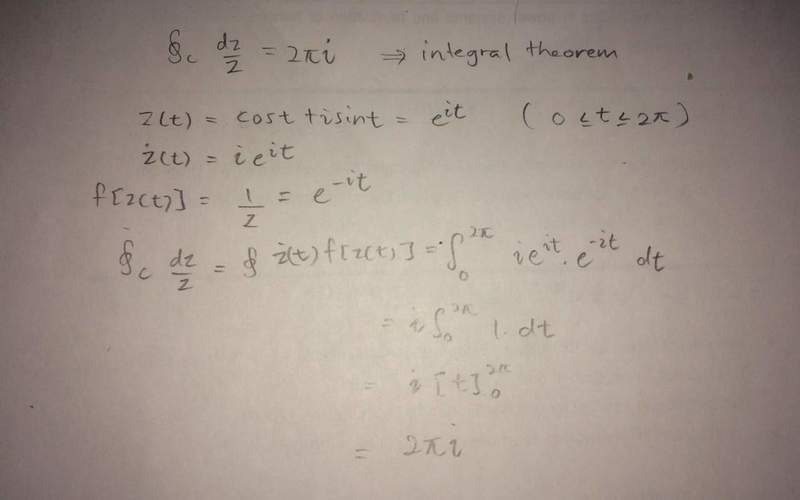 ∮c dz/z = 2πi ⇒ integral theorem
z(t) = cost + isint = e^it (0 ≤ t ≤ 2π)
ż(t) = i e^it
f[z(t)] = 1/z = e^-it
∮c dz/z = ∮ ż(t) f[z(t)] = ∫₀^2π i e^it . e^-it dt
= i ∫₀^2π 1. dt
= i [t]₀^2π
= 2πi